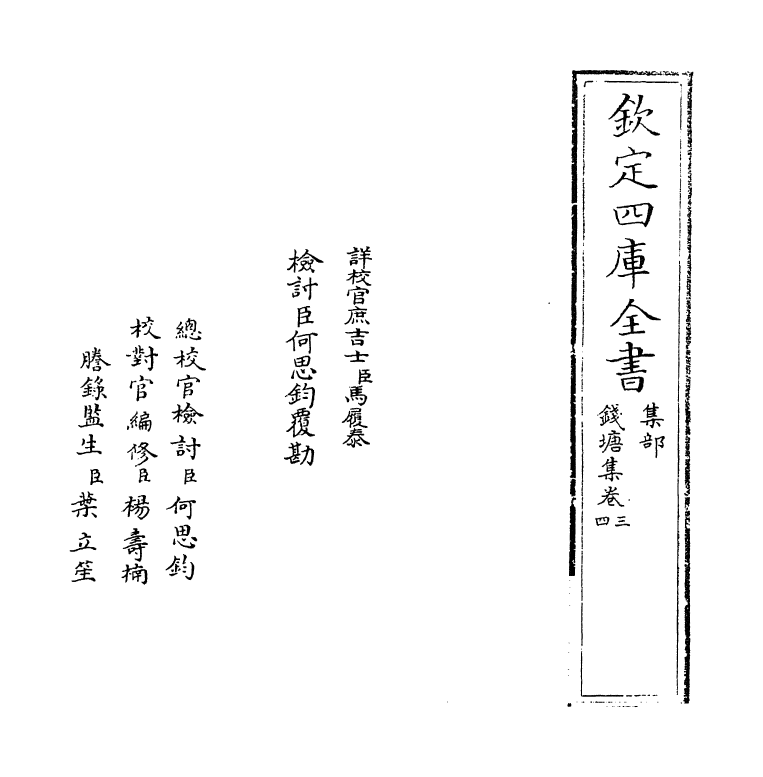 欽定四庫全書
集部
錢塘集卷三四
詳校官庶吉士臣馬履泰
檢討臣何思鈞覆勘
總校官檢討臣何思鈞
校對官編修臣楊壽楠
謄錄監生臣葉立笙